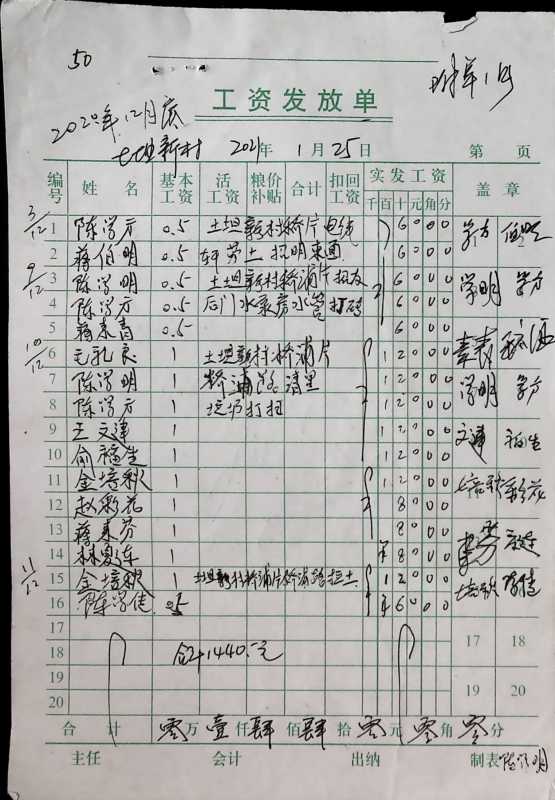 50
工资发放单
2020年12月底
土坦新村 2021年 1月25日 第 页
编号 姓名 基本工资 活工资 粮价补贴 合计 扣回工资 实发工资 千百十元角分 盖章
3/12 1 陈学方 0.5 土坦新村桥片 6000 学方
2 蒋伯明 0.5 6000
9/12 3 陈学明 0.5 土坦新村桥浦片 6000 学明 学方
4 陈学方 0.5 后门水泵房水管打砖 6000
5 蒋来青 0.5 6000
10/12 6 毛乳良 1 土坦新村桥浦片 12000
7 陈学明 1 桥浦路清里 12000 学明 学方
8 陈学方 1 垃圾打扫 12000
9 王文建 1 12000 文建 福生
10 俞福生 1 12000
11 金培秋 1 12000 培秋 彩花
12 赵彩花 1 8000
13 蒋来芬 1 8000
14 林夏连 1 ¥8000
11/12 15 金培秋 1 土坦新村桥浦片桥浦路拉土 12000 培秋 学佳
16 陈学佳 0.5 ¥6000
17 17 18
18 合计1440.-元
19 19 20
20
合计 零万壹仟肆佰肆拾零元零角零分
主任 会计 出纳 制表 陈学明